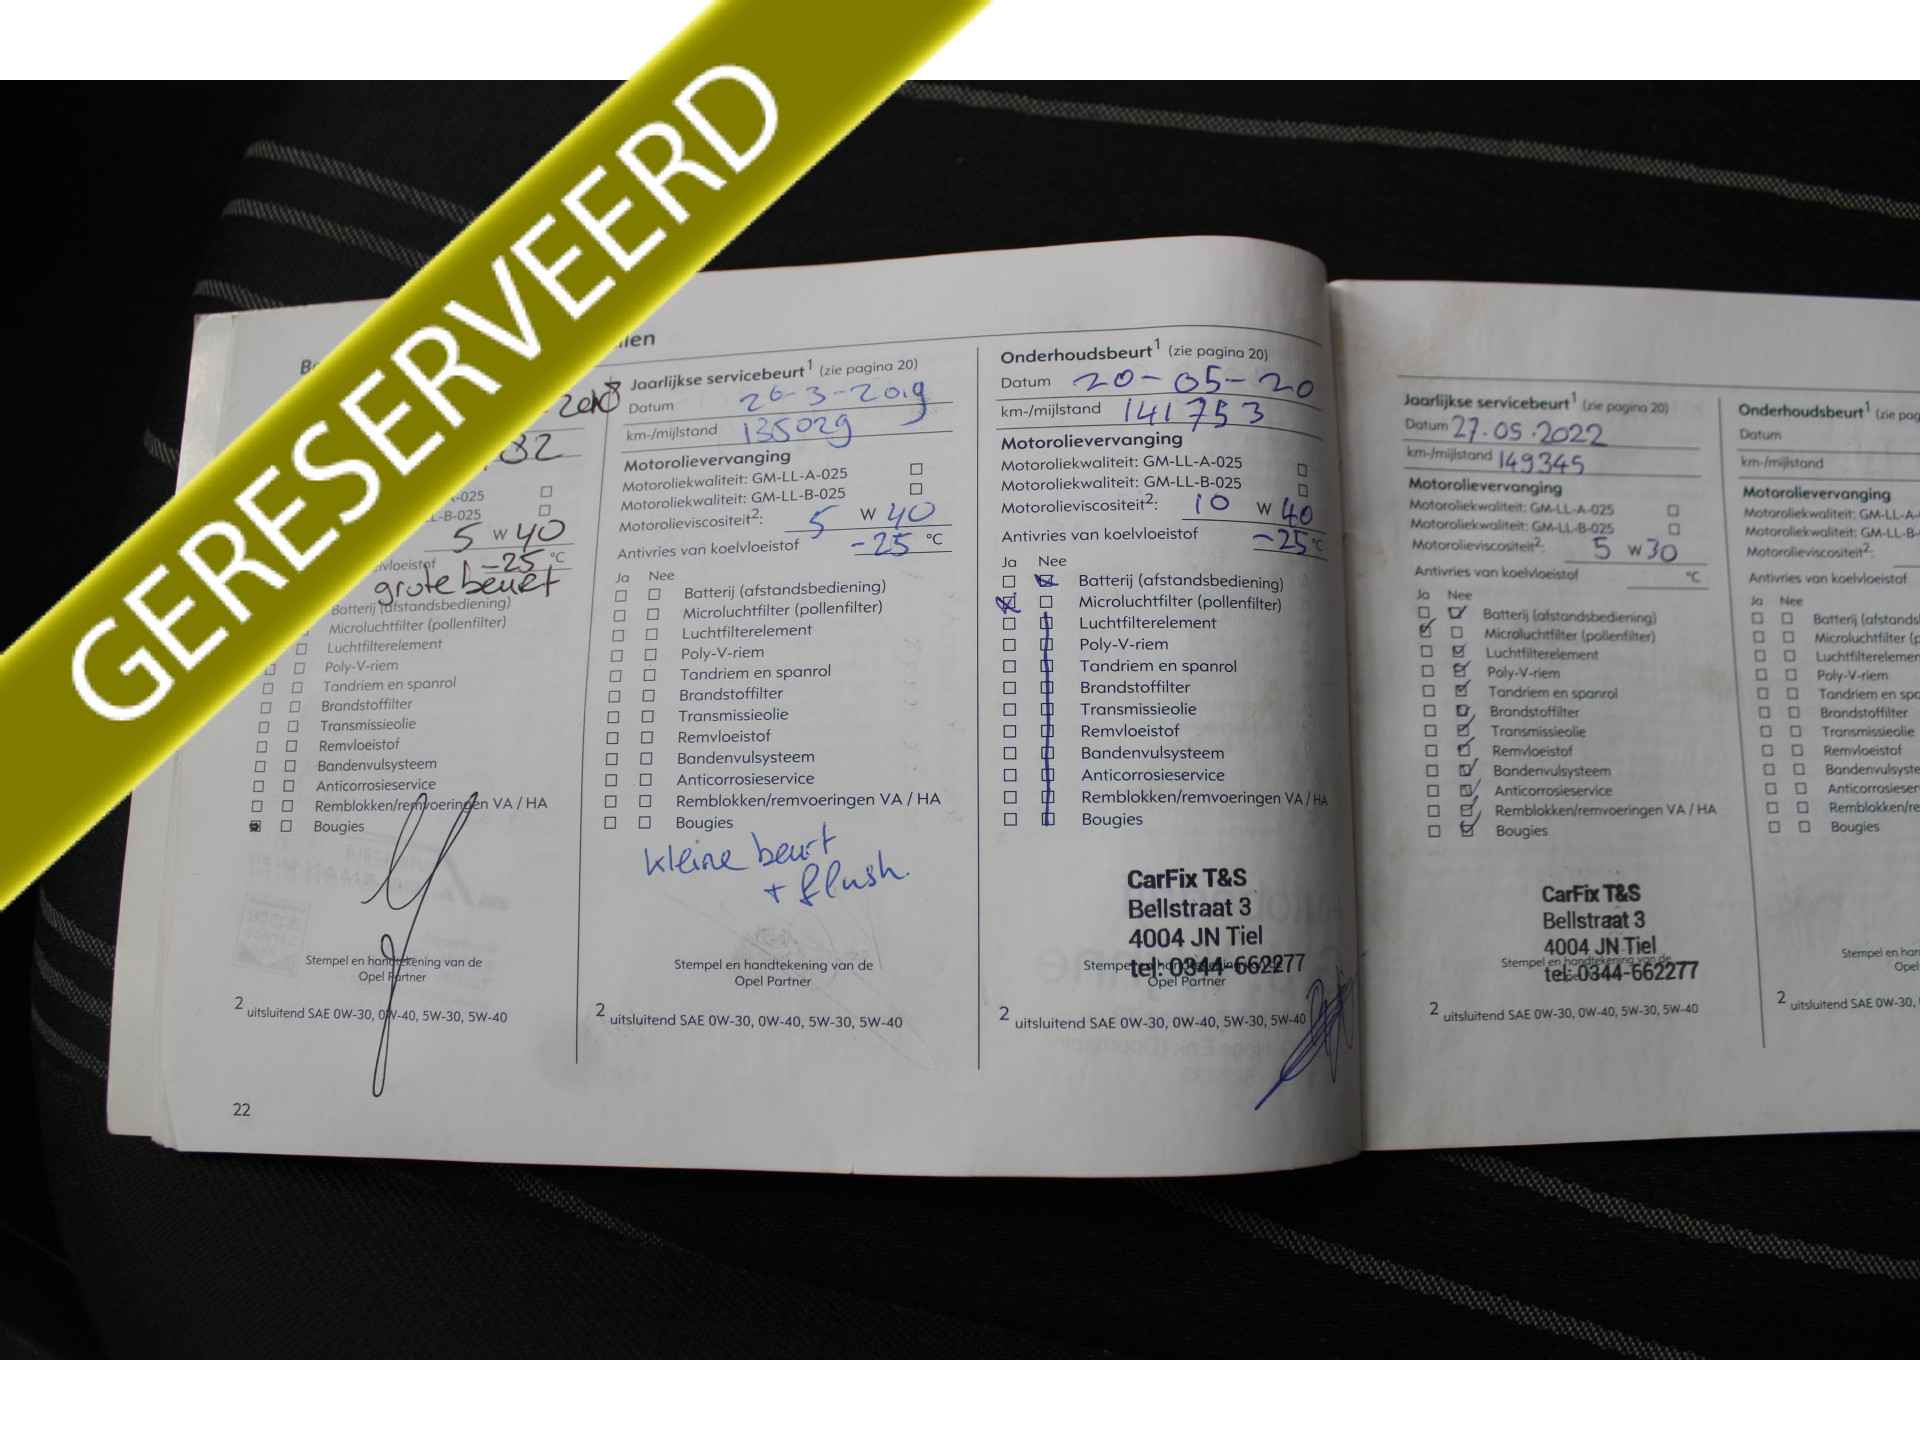 GERESERVEERD
2018
82
-025
LL-B-025
5 W 40
-25 °C
grote beurt
Batterij (afstandsbediening)
Microluchtfilter (pollenfilter)
Luchtfilterelement
Poly-V-riem
Tandriem en spanrol
Brandstoffilter
Transmissieolie
Remvloeistof
Bandenvulsysteem
Anticorrosieservice
Remblokken/remvoeringen VA / HA
Bougies
Stempel en handtekening van de
Opel Partner
2 uitsluitend SAE 0W-30, 0W-40, 5W-30, 5W-40
22
Jaarlijkse servicebeurt1 (zie pagina 20)
Datum 26-3-2019
km-/mijlstand 135029
Motorolievervanging
Motoroliekwaliteit: GM-LL-A-025
Motoroliekwaliteit: GM-LL-B-025
Motorolieviscositeit2: 5 W 40
Antivries van koelvloeistof -25 °C
Ja Nee
Batterij (afstandsbediening)
Microluchtfilter (pollenfilter)
Luchtfilterelement
Poly-V-riem
Tandriem en spanrol
Brandstoffilter
Transmissieolie
Remvloeistof
Bandenvulsysteem
Anticorrosieservice
Remblokken/remvoeringen VA / HA
Bougies
kleine beurt
+ flush
Stempel en handtekening van de
Opel Partner
2 uitsluitend SAE 0W-30, 0W-40, 5W-30, 5W-40
Onderhoudsbeurt1 (zie pagina 20)
Datum 20-05-20
km-/mijlstand 141753
Motorolievervanging
Motoroliekwaliteit: GM-LL-A-025
Motoroliekwaliteit: GM-LL-B-025
Motorolieviscositeit2: 10 W 40
Antivries van koelvloeistof -25 °C
Ja Nee
Batterij (afstandsbediening)
Microluchtfilter (pollenfilter)
Luchtfilterelement
Poly-V-riem
Tandriem en spanrol
Brandstoffilter
Transmissieolie
Remvloeistof
Bandenvulsysteem
Anticorrosieservice
Remblokken/remvoeringen VA / HA
Bougies
CarFix T&S
Bellstraat 3
4004 JN Tiel
tel: 0344-662277
Opel Partner
2 uitsluitend SAE 0W-30, 0W-40, 5W-30, 5W-40
Jaarlijkse servicebeurt1 (zie pagina 20)
Datum 27.05.2022
km-/mijlstand 149345
Motorolievervanging
Motoroliekwaliteit: GM-LL-A-025
Motoroliekwaliteit: GM-LL-B-025
Motorolieviscositeit2: 5 W 30
Antivries van koelvloeistof °C
Ja Nee
Batterij (afstandsbediening)
Microluchtfilter (pollenfilter)
Luchtfilterelement
Poly-V-riem
Tandriem en spanrol
Brandstoffilter
Transmissieolie
Remvloeistof
Bandenvulsysteem
Anticorrosieservice
Remblokken/remvoeringen VA / HA
Bougies
CarFix T&S
Bellstraat 3
4004 JN Tiel
tel: 0344-662277
2 uitsluitend SAE 0W-30, 0W-40, 5W-30, 5W-40
Onderhoudsbeurt1 (zie pag
Datum
km-/mijlstand
Motorolievervanging
Motoroliekwaliteit: GM-LL-A-
Motoroliekwaliteit: GM-LL-B-
Motorolieviscositeit2:
Antivries van koelvloeistof
Ja Nee
Batterij (afstands
Microluchtfilter (p
Luchtfilterelemen
Poly-V-riem
Tandriem en spa
Brandstoffilter
Transmissieolie
Remvloeistof
Bandenvulsyste
Anticorrosieser
Remblokken/re
Bougies
Stempel en han
Opel
2 uitsluitend SAE 0W-30,